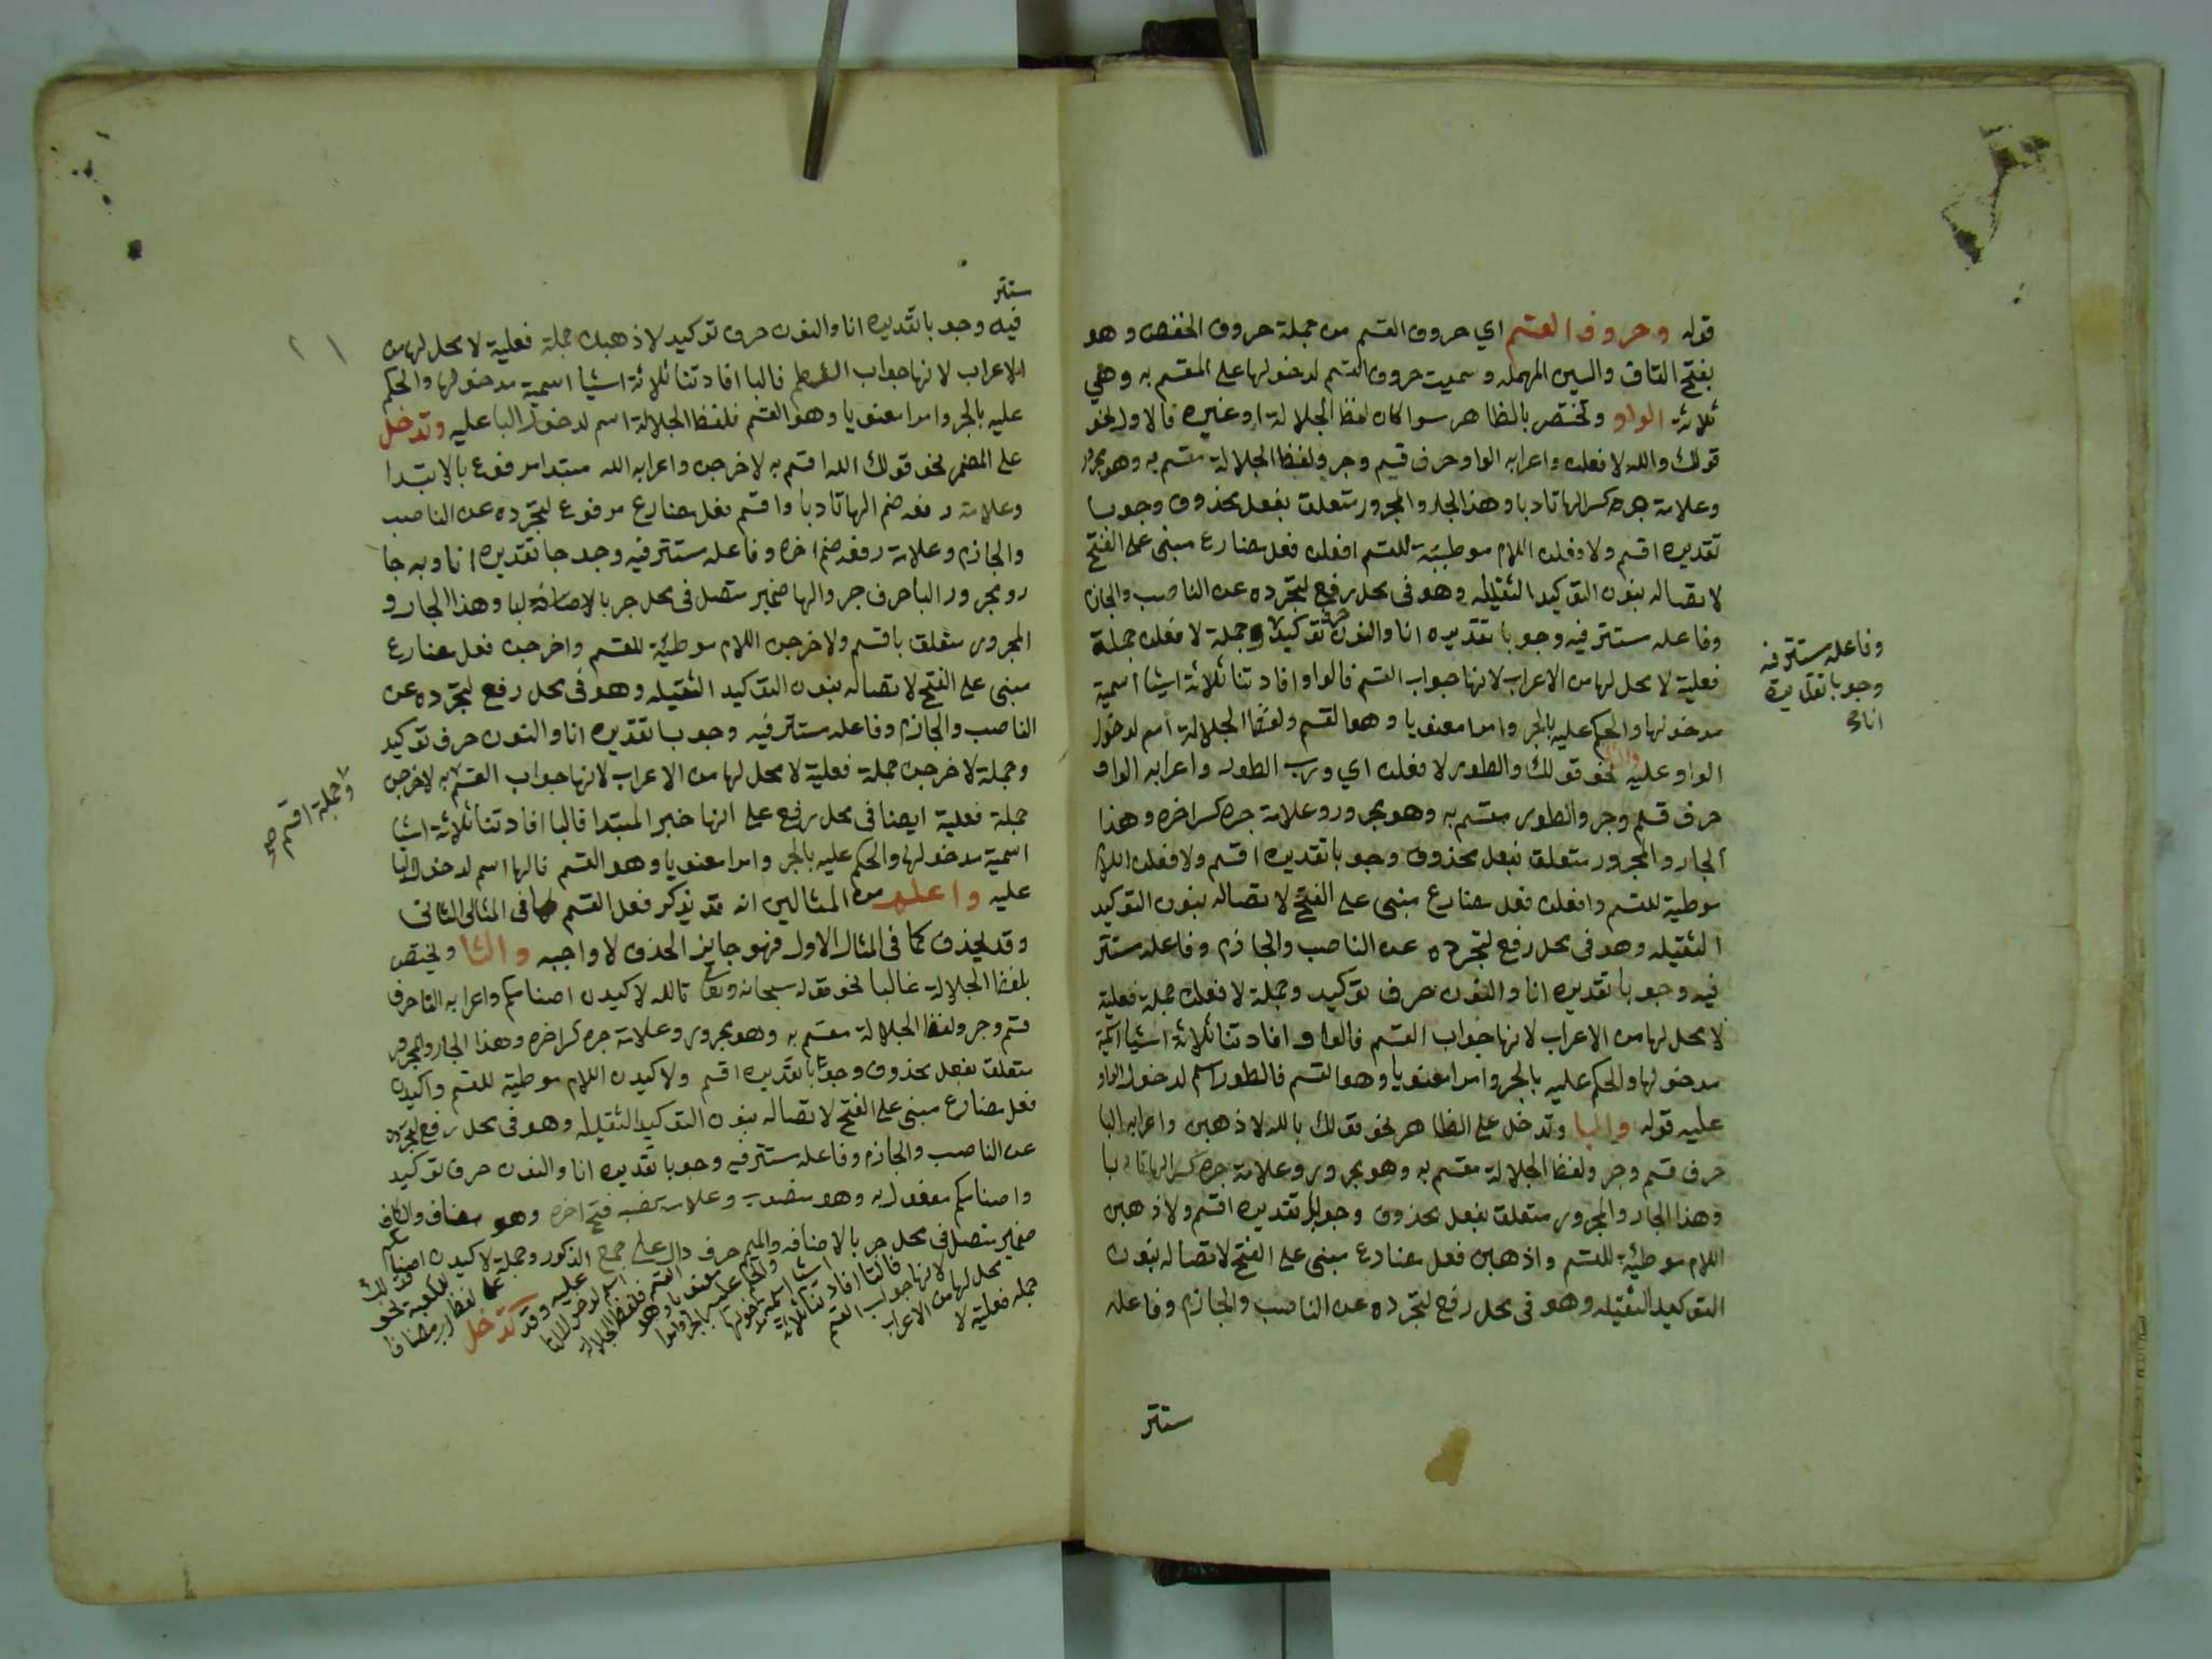 قوله وحروف القسم اي حروف القسم من جملة حروف الخفض وهو
بفتح القاف والسين المهمله وسميت حروف القسم لدخولها على المقسم به وهي
ثلاثة الواو وتختص بالظاهر سوا كان لفظ الجلالة او غيره فالاول نحو
قولك والله لافعلن واعرابه الواو حرف قسم وجر ولفظ الجلالة مقسم به وهو مجرور
وعلامة جره كسر الها تادبا وهذا الجار والمجرور متعلق بفعل محذوف وجوبا
تقديره اقسم ولافعلن اللام موطيئة للقسم افعلن فعل مضارع مبنى على الفتح
لاتصاله بنون التوكيد الثقيله وهو فى محل رفع لتجرده عن الناصب والجازم
وفاعله مستتر فيه وجوبا تقديره انا والنون حرف توكيد وجملة لافعلن جملة
فعلية لا محل لها من الاعراب لانها جواب القسم فالواو افادتنا ثلاثة اشيا اسمية
مدخولها والحكم عليه بالجر وامرا معنويا وهو القسم ولفظ الجلالة اسم لدخول
الواو عليه والثاني نحو قولك والطور لافعلن اي ورب الطور واعرابه الواو
حرف قسم وجر والطور مقسم به وهو مجرور وعلامة جره كسر اخره وهذا
الجار والمجرور متعلق بفعل محذوف وجوبا تقديره اقسم ولافعلن اللام
موطية للقسم وافعلن فعل مضارع مبنى على الفتح لاتصاله بنون التوكيد
الثقيله وهو فى محل رفع لتجرده عن الناصب والجازم وفاعله مستتر
فيه وجوبا تقديره انا والنون حرف توكيد وجملة لافعلن جملة فعلية
لا محل لها من الاعراب لانها جواب القسم فالواو افادتنا ثلاثة اشيا اسمية
مدخولها والحكم عليه بالجر وامرا معنويا وهو القسم فالطور اسم لدخول الواو
عليه قوله والبا وتدخل على الظاهر نحو قولك بالله لاذهبن واعرابه البا
حرف قسم وجر ولفظ الجلالة مقسم به وهو مجرور وعلامة جره كسر الها تادبا
وهذا الجار والمجرور متعلق بفعل محذوف وجوبا تقديره اقسم ولاذهبن
اللام موطئية للقسم واذهبن فعل مضارع مبنى على الفتح لاتصاله بنون
التوكيد الثقيله وهو فى محل رفع لتجرده عن الناصب والجازم وفاعله
مستتر
وفاعله مستتر فيه
وجوبا تقديره
انا
مستتر
فيه وجوبا تقديره انا والنون حرف توكيد لاذهبن جملة فعلية لا محل لها من
الاعراب لانها جواب القسم فالبا افادتنا ثلاثة اشيا اسمية مدخولها والحكم
عليه بالجر وامرا معنويا وهو القسم فلفظ الجلالة اسم لدخول البا عليه وتدخل
على المضمر نحو قولك الله اقسم به لاخرجن واعرابه الله مبتدا مرفوع بالابتدا
وعلامة رفعه ضم الها تادبا واقسم فعل مضارع مرفوع لتجرده عن الناصب
والجازم وعلامة رفعه ضم اخره وفاعله مستتر فيه وجوبا تقديره انا وبه جا
رومجرور البا حرف جر والها ضمير متصل فى محل جر بالاضافة لبا وهذا الجار و
المجرور متعلق باقسم ولاخرجن اللام موطئية للقسم واخرجن فعل مضارع
مبنى على الفتح لاتصاله بنون التوكيد الثقيله وهو فى محل رفع لتجرده عن
الناصب والجازم وفاعله مستتر فيه وجوبا تقديره انا والنون حرف توكيد
وجملة لاخرجن جملة فعلية لا محل لها من الاعراب لانها جواب القسم به لاخرجن
جملة فعلية ايضا فى محل رفع على انها خبر المبتدا فالبا افادتنا ثلاثة اشيا
اسمية مدخولها والحكم عليه بالجر وامرا معنويا وهو القسم فالها اسم لدخول البا
عليه واعلم من المثالين انه قد يذكر فعل القسم كما فى المثال الثانى
وقد يحذف كما فى المثال الاول فهو جايز الحذف لا واجبه والتا ويختص
بلفظ الجلالة غالبا نحو قوله سبحانه وتعالى تالله لاكيدن اصنامكم واعرابه التا حرف
قسم وجر ولفظ الجلالة مقسم به وهو مجرور وعلامة جره كسر اخره وهذا الجار والمجرور
متعلق بفعل محذوف وجوبا تقديره اقسم ولاكيدن اللام موطية للقسم واكيدن
فعل مضارع مبنى على الفتح لاتصاله بنون التوكيد الثقيله وهو فى محل رفع لتجرده
عن الناصب والجازم وفاعله مستتر فيه وجوبا تقديره انا والنون حرف توكيد
واصنامكم مفعول به وهو منصوب وعلامة نصبه فتح اخره وهو مضاف والكاف
ضمير متصل فى محل جر بالاضافه والميم حرف دال على جمع الذكور وجملة لاكيدن اصنامكم
جملة فعلية لا
محل لها من الاعراب
لانها جواب القسم
فالتا افادتنا ثلاثة
اشيا اسمية مدخولها
والحكم عليه بالجر وامرا
معنويا وهو
القسم فلفظ الجلالة
اسم لدخول التا
عليه وقد تدخل
على لفظ رب مضافا
للكعبة نحو
وجملة اقسم صح